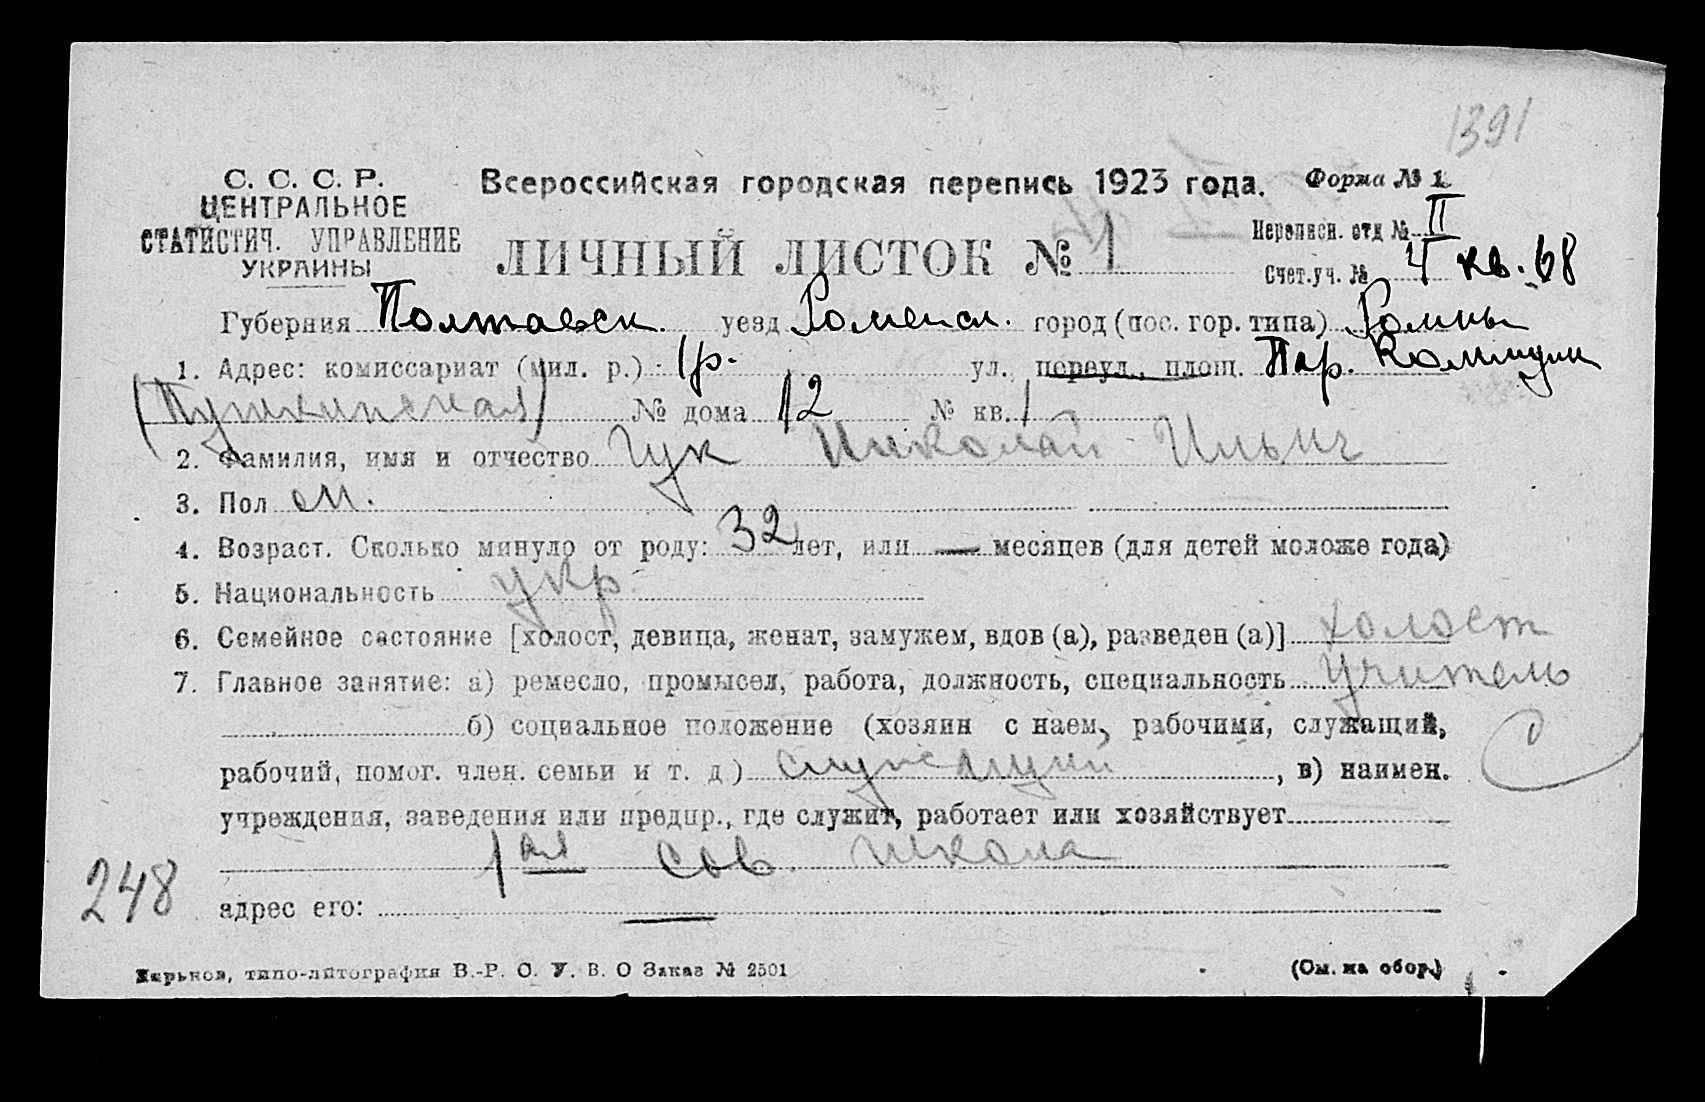 1391
С. С. С. Р.
ЦЕНТРАЛЬНОЕ
СТАТИСТИЧ. УПРАВЛЕНИЕ
УКРАИНЫ
Всероссийская городская перепись 1923 года.
Форма № 1
ЛИЧНЫЙ ЛИСТОК № 1
Переписн. отд № II
Счет.уч. № 4 кв. 68
Губерния Полтавск. уезд Роменск. город (пос. гор. типа) Ромны
1. Адрес: комиссариат (мил. р.) 1р. ул., переул., площ. Пар. Коммуны
(Пушкинская) № дома 12 № кв. 1
2. Фамилия, имя и отчество Гук Николай Ильич
3. Пол м.
4. Возраст. Сколько минуло от роду: 32 лет, или — месяцев (для детей моложе года)
5. Национальность укр.
6. Семейное состояние [холост, девица, женат, замужем, вдов (а), разведен (а)] холост
7. Главное занятие: а) ремесло, промысел, работа, должность, специальность учитель
б) социальное положение (хозяин с наем, рабочими, служащий,
рабочий, помог. член. семьи и т. д) служащий, в) наимен.
С
учреждения, заведения или предпр., где служит, работает или хозяйствует
1ая сов. школа
248
адрес его: —
Харьков, типо-литография В.-Р. С. У. В. О Заказ № 2501
(См. на обор.)